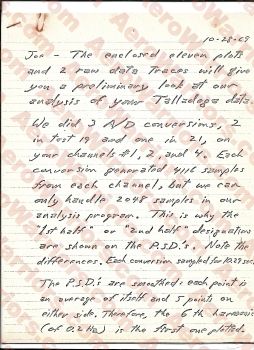 10-28-69
Joe - The enclosed eleven plots
and 2 raw data traces will give
you a preliminary look at our
analysis of your Talladega data.
We did 3 A/D conversions, 2
in test 19 and one in 21, on
your channels #1, 2, and 4. Each
conversion generated 4116 samples
from each channel, but we can
only handle 2048 samples in our
analysis program. This is why the
"1st half" or "2nd half" designations
are shown on the P.S.D.'s. Note the
differences. Each conversion sampled for
The P.S.D.'s are smoothed: each point is
an average of itself and 5 points on
either side. Therefore, the 6th harmonic
(of 0.2 Hz) is the first one plotted.